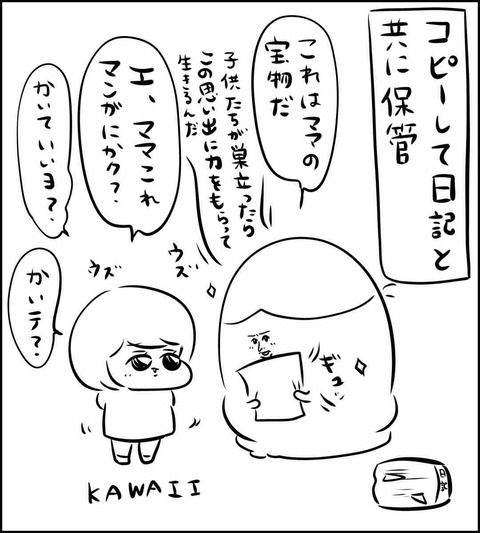 コピーして日記と
共に保管
これはママの
宝物だ
子供たちが巣立ったら
この思い出に力をもらって
生きるんだ
エ、ママこれ
マンガにかク？
かいていいヨ？
かいテ？
ウズ
ウズ
ギュッ
KAWAII
日記